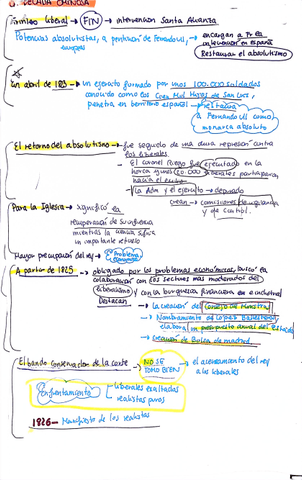 DÉCADA OMINOSA
Trienio liberal → FIN → intervención Santa Alianza
Potencias absolutistas, a petición de Fernando VII, → encargan a Fr la
europeas
intervención en España
Restaurar el absolutismo
En abril de 1823 → un ejército formado por unos 100.000 soldados
conocido como los Cien Mil Hijos de San Luis
penetra en territorio español → restaura
a Fernando VII como
monarca absoluto
El retorno del absolutismo → fue seguido de una dura represión contra
los liberales
El coronel Riego fue ejecutado en la
horca y unos 20.000 liberales partieron
hacia el exilio
La Adm y el ejército → depurado
crean → comisiones de vigilancia
y de control.
Para la Iglesia → significó la
recuperación de su influencia
mientras la
Mayor preocupación del rey → Problema
económico
A partir de 1825 → obligado por los problemas económicos, buscó la
colaboración con los sectores más moderados del
liberalismo y con la burguesía financiera e industrial
Destacan → la creación del Consejo de Ministros
→ Nombramiento de López Ballesteros
elabora un presupuesto anual del Estado
→ Creación de Bolsa de Madrid
El bando conservador de la corte → NO SE
TOMÓ BIEN → el acercamiento del rey
a los liberales
Enfrentamiento
liberales exaltados
realistas puros
1826 → Manifiesto de los realistas